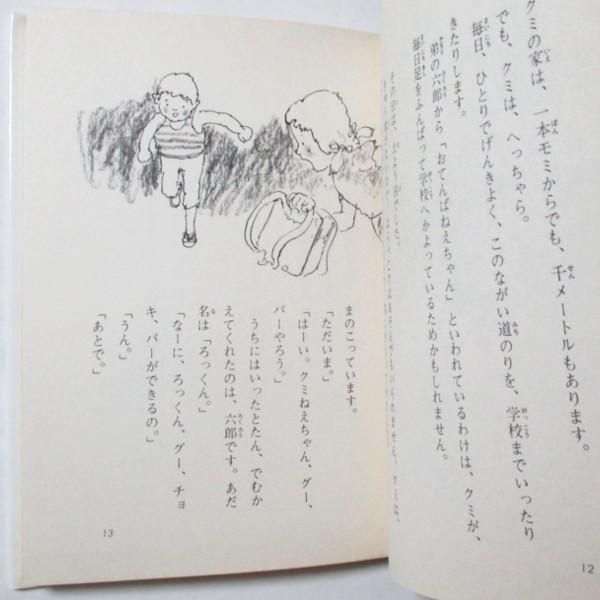 クミの家は、一本モミからでも、千メートルもあります。
でも、クミは、へっちゃら。
毎日、ひとりでげんきよく、このながい道のりを、学校までいったり
きたりします。
弟の六郎から「おてんばねえちゃん」といわれているわけは、クミが、
毎日足をふんばって学校へかよっているためかもしれません。
12
まのこっています。
「ただいま。」
「はーい。クミねえちゃん、グー、
パーやろう。」
うちにはいったとたん、でむか
えてくれたのは、六郎です。あだ
名は「ろっくん。」
「なーに、ろっくん、グー、チョ
キ、パーができるの。」
「うん。」
「あとで。」
13